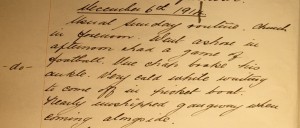 December 6th 191
Usual Sunday routine. Church
in forenoon. Went ashore in
afternoon had a game of
football. One chap broke his
-do- ankle. Very cold while waiting
to come off in picket boat.
Nearly unshipped gangway when
coming alongside.